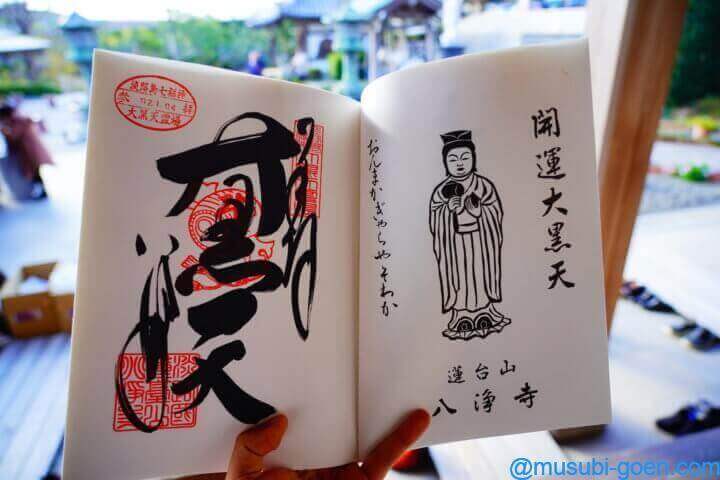 開運大黒天
おんまかぎゃらやそわか
蓮台山
八浄寺
淡路島七福神
021.04
大黒天霊場
大黒天
@musubi-goen.com